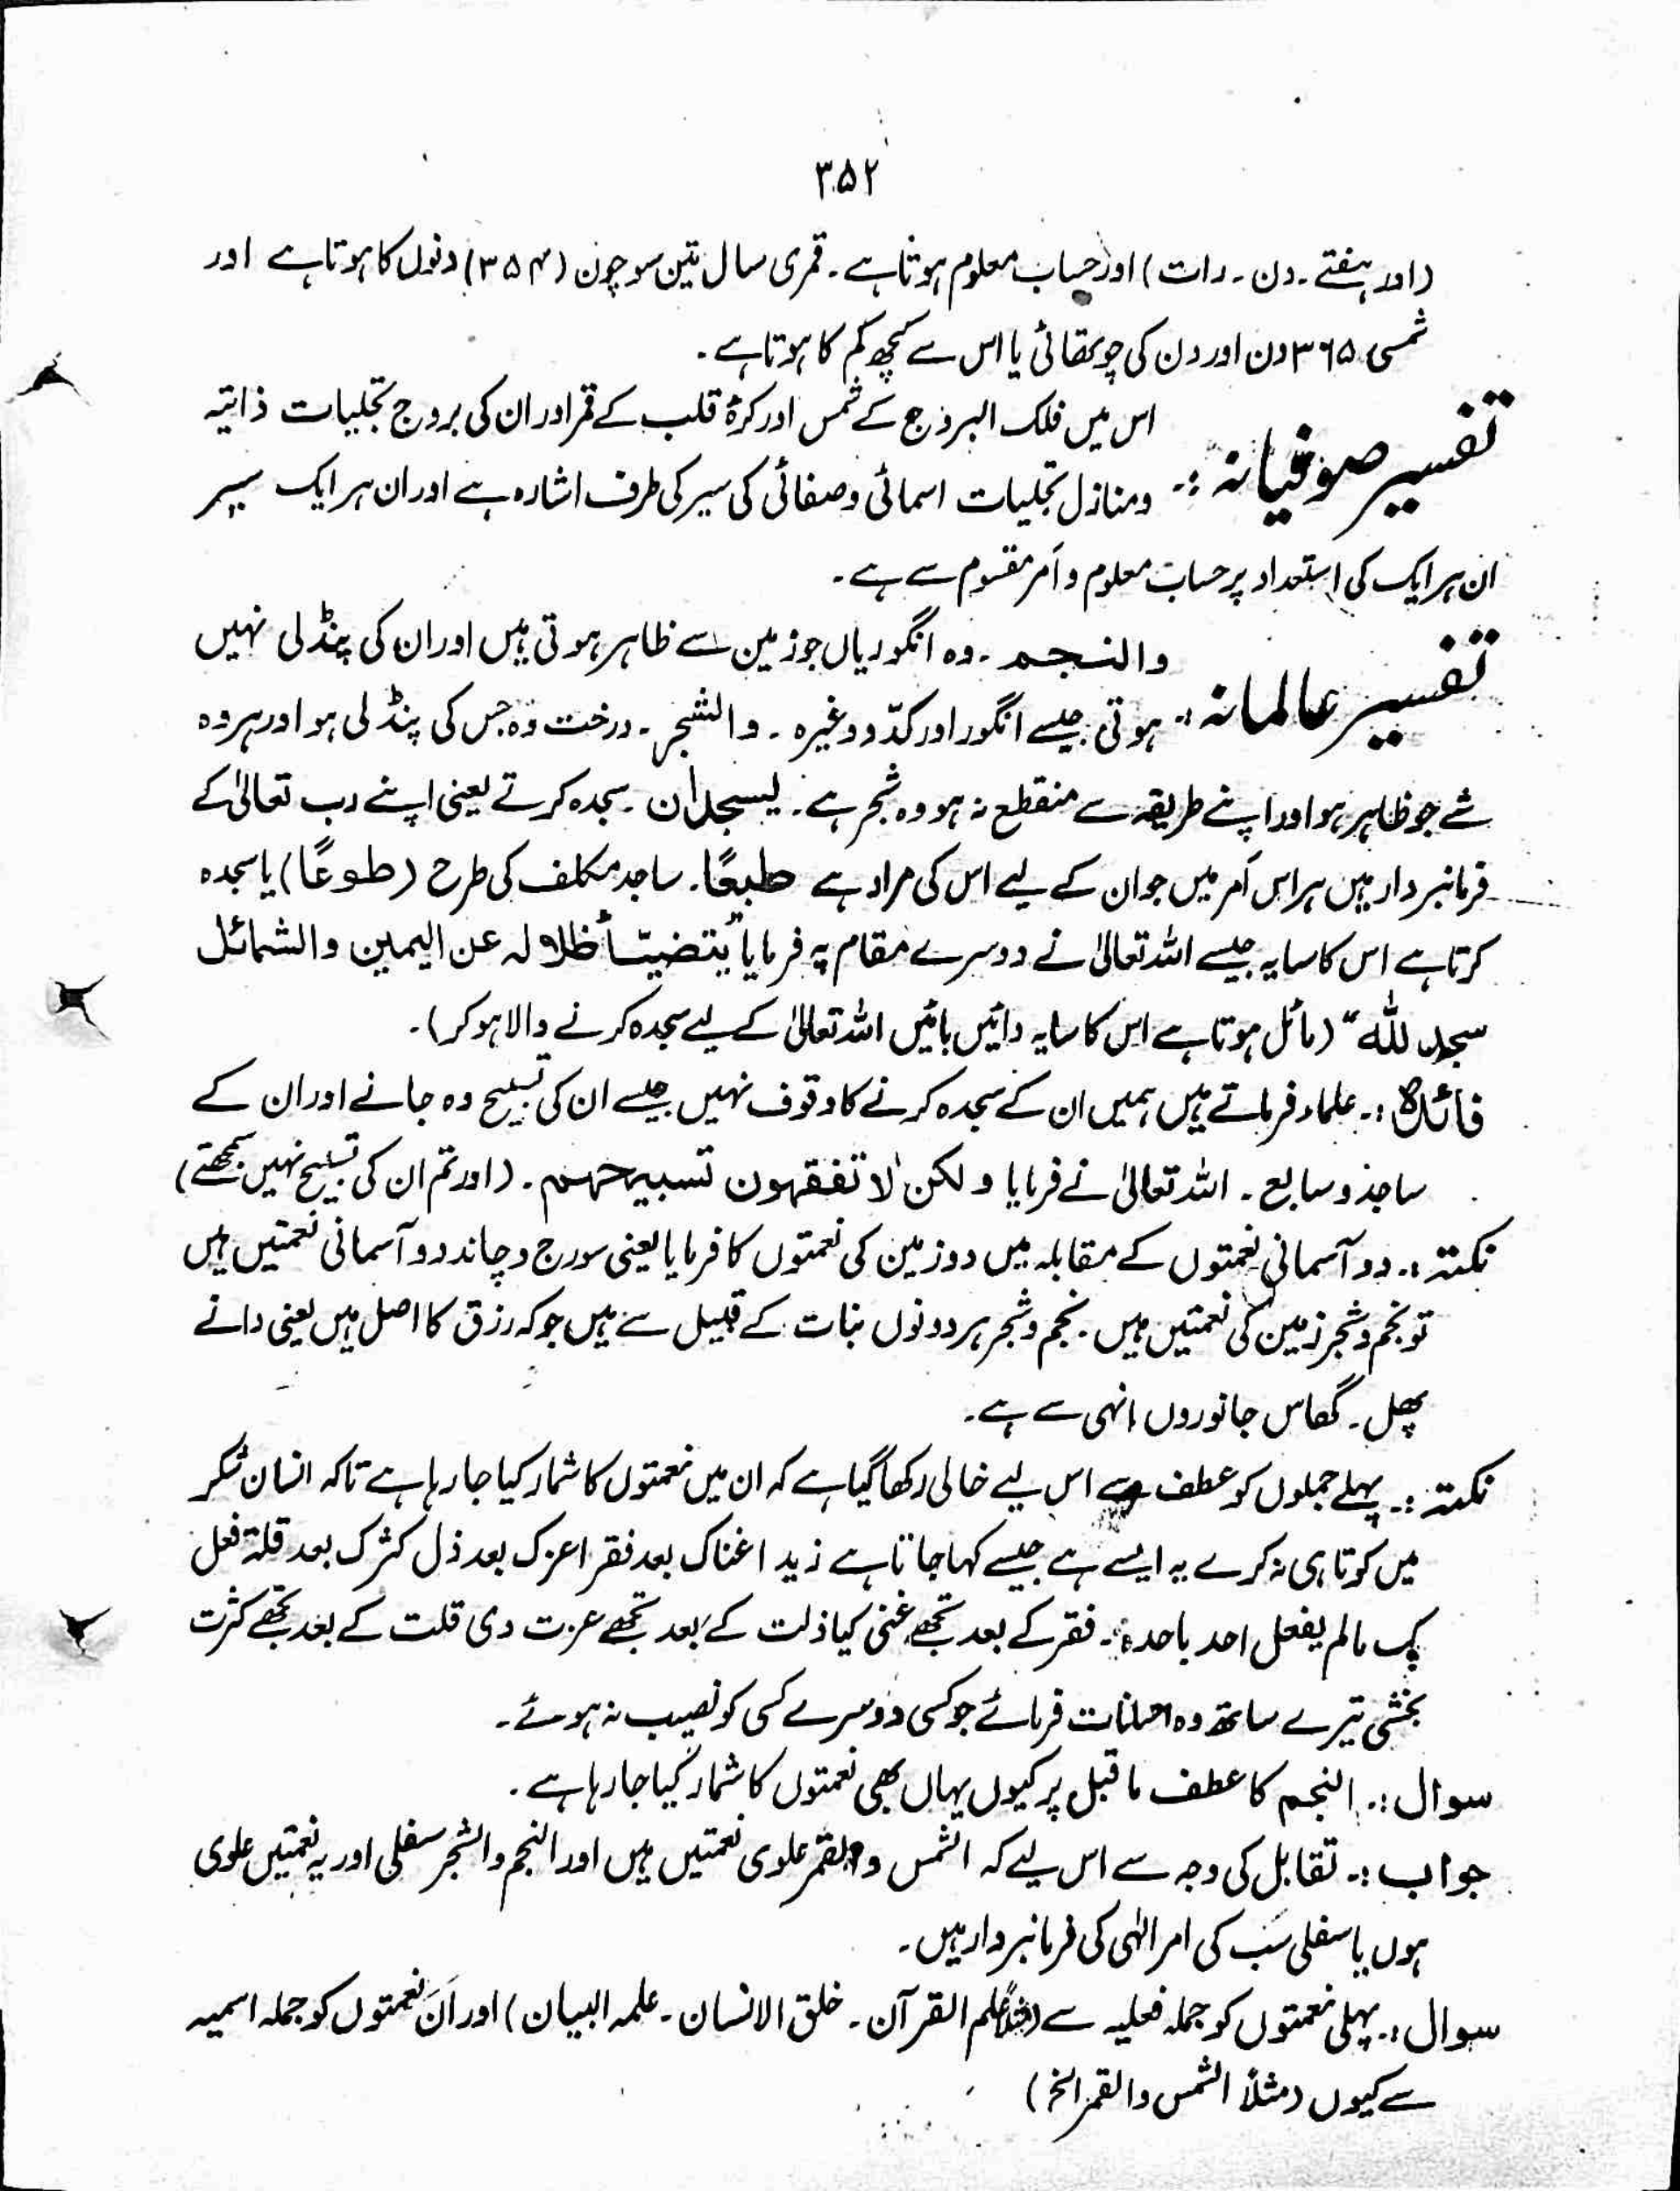 ۳۵۲
(اور ہفتے ۔ دن ۔ رات) اور حساب معلوم ہوتا ہے ۔ قمری سال تین سو چون (۳۵۴) دنوں کا ہوتا ہے اور
شمسی ۳۶۵ دن اور دن کی چوتھائی یا اس سے کچھ کم کا ہوتا ہے ۔
تفسیر صوفیانہ :۔ اس میں فلک البروج کے شمس اور کرۂ قلب کے قمر اور ان کی بروج تجلیات ذاتیہ
ومنازل تجلیات اسمائی وصفائی کی سیر کی طرف اشارہ ہے اور ان ہر ایک سیر
ان ہر ایک کی استعداد پر حساب معلوم و اَمر مقسوم سے ہے ۔
تفسیر عالمانہ :۔ والنجم ۔ وہ انگوریاں جو زمین سے ظاہر ہوتی ہیں اور ان کی پنڈلی نہیں
ہوتی جیسے انگور اور کدّو وغیرہ ۔ والشجر ۔ درخت وہ جس کی پنڈلی ہو اور ہر وہ
شے جو ظاہر ہو اور اپنے طریقہ سے منقطع نہ ہو وہ شجر ہے ۔ یسجدان ۔ سجدہ کرتے یعنی اپنے رب تعالیٰ کے
فرمانبردار ہیں ہر اس اَمر میں جو ان کے لیے اس کی مراد ہے طبعًا ۔ ساجد مکلف کی طرح (طوعًا) یا سجدہ
کرتا ہے اس کا سایہ جیسے اللہ تعالیٰ نے دوسرے مقام پہ فرمایا ”یتضیّأ ظلالہ عن الیمین والشمائل
سجد للہ“ (مائل ہوتا ہے اس کا سایہ دائیں بائیں اللہ تعالیٰ کے لیے سجدہ کرنے والا ہو کر) ۔
فائدہ :۔ علماء فرماتے ہیں ہمیں ان کے سجدہ کرنے کا وقوف نہیں جیسے ان کی تسبیح وہ جانے اور ان کے
ساجد و سابع ۔ اللہ تعالیٰ نے فرمایا و لکن لا تفقہون تسبیحہم ۔ (اور تم ان کی تسبیح نہیں سمجھتے)
نکتہ :۔ دو آسمانی نعمتوں کے مقابلہ میں دو زمین کی نعمتوں کا فرمایا یعنی سورج و چاند دو آسمانی نعمتیں ہیں
تو نجم و شجر زمین کی نعمتیں ہیں ۔ نجم و شجر ہر دونوں نبات کے قبیل سے ہیں جو کہ رزق کا اصل ہیں یعنی دانے
پھل ۔ گھاس جانوروں انہی سے ہے ۔
نکتہ :۔ پہلے جملوں کو عطف سے اس لیے خالی رکھا گیا ہے کہ ان میں نعمتوں کا شمار کیا جا رہا ہے تاکہ انسان شکر
میں کوتاہی نہ کرے یہ ایسے ہے جیسے کہا جاتا ہے زید اغناک بعد فقر اعزک بعد ذل کثرک بعد قلۃ فعل
بک مالم یفعل احد باحد ۔ فقر کے بعد تجھے غنی کیا ذلت کے بعد تجھے عزت دی قلت کے بعد تجھے کثرت
بخشی تیرے ساتھ وہ احسانات فرمائے جو کسی دوسرے کسی کو نصیب نہ ہوئے ۔
سوال :۔ النجم کا عطف ما قبل پر کیوں یہاں بھی نعمتوں کا شمار کیا جا رہا ہے ۔
جواب :۔ تقابل کی وجہ سے اس لیے کہ الشمس والقمر علوی نعمتیں ہیں اور النجم والشجر سفلی اور یہ نعمتیں علوی
ہوں یا سفلی سب کی امر الٰہی کی فرمانبردار ہیں ۔
سوال :۔ پہلی نعمتوں کو جملہ فعلیہ سے (مثلاً علم القرآن ۔ خلق الانسان ۔ علمہ البیان) اور ان نعمتوں کو جملہ اسمیہ
سے کیوں (مثلاً الشمس والقمر الخ)